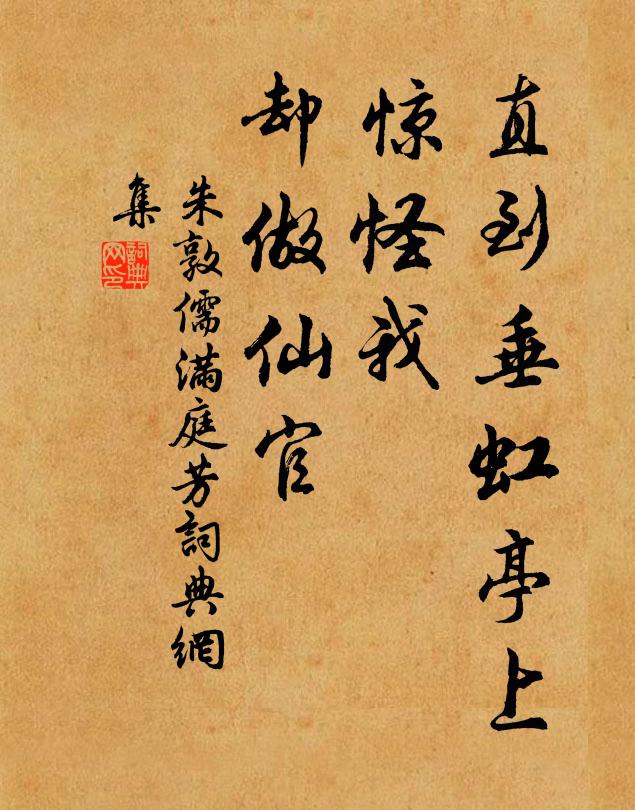 直到垂虹亭上
惊怪我
却做仙官
朱敦儒满庭芳詞典網
集
詞典
网印